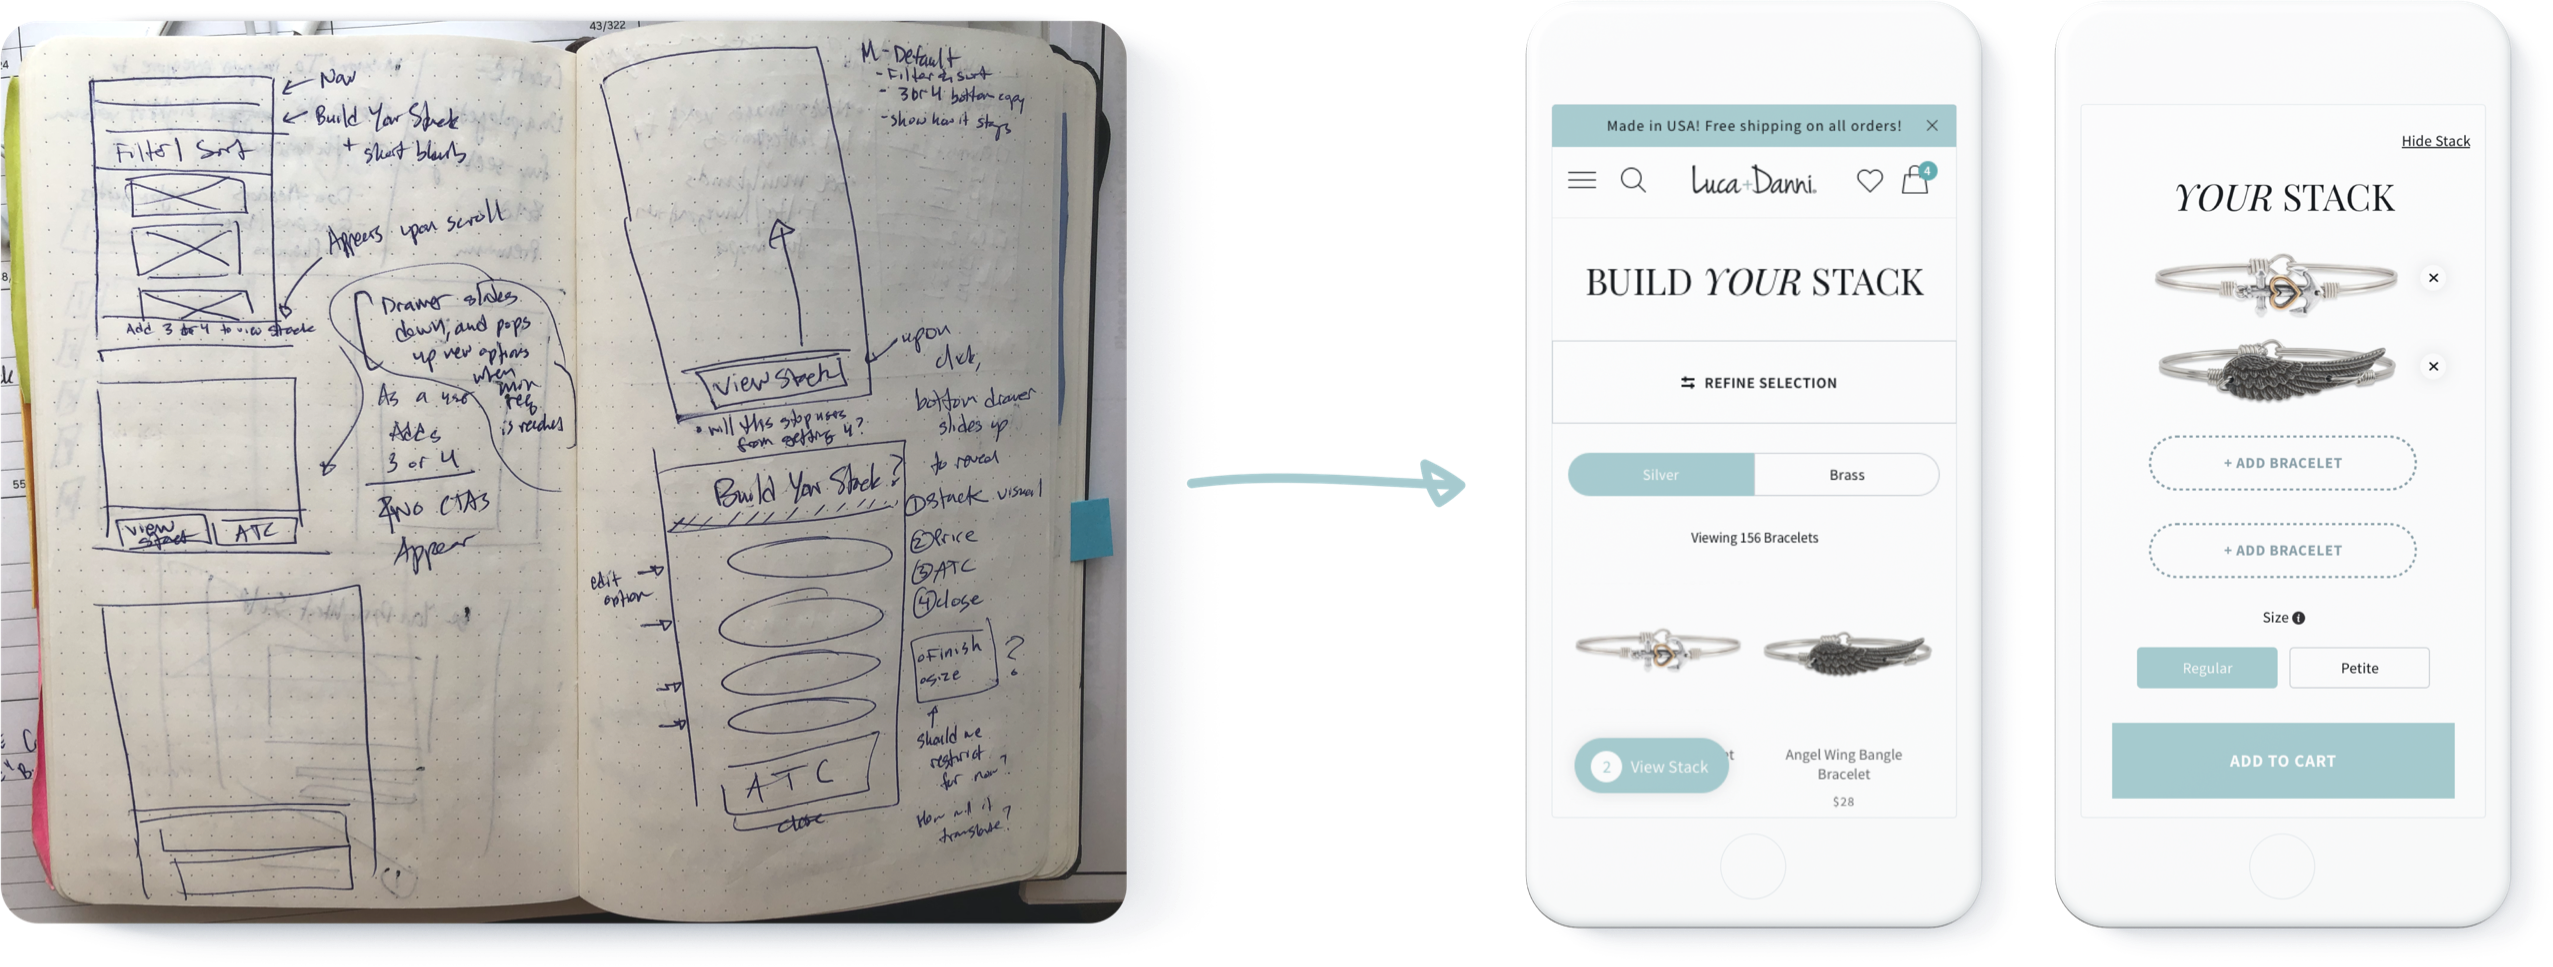 43/322
← Nav
← Build Your Stack
+ short blurb
Filter | Sort
Appears upon scroll
Add 3 or 4 to view stack
Drawer slides
down, and pops
up new options
when
min
req
is reached
As a user
Adds
3 or 4
NO CTAs
Appear
View
Stack
ATC
55
M-Default
- Filter & sort
- 3 or 4 bottom copy
- show how it stays
View Stack
upon
click,
bottom drawer
slides up
to reveal
① stack visual
② Price
③ ATC
④ close
• will this stop users
from getting 4?
Build Your Stack?
edit
option
o Finish
o size
?
should we
restrict
for now?
How will it
translate?
ATC
close
Made in USA! Free shipping on all orders!
Luca+Danni
4
BUILD YOUR STACK
REFINE SELECTION
Silver
Brass
Viewing 156 Bracelets
2 View Stack
et
Angel Wing Bangle
Bracelet
$28
Hide Stack
YOUR STACK
+ ADD BRACELET
+ ADD BRACELET
Size
Regular
Petite
ADD TO CART